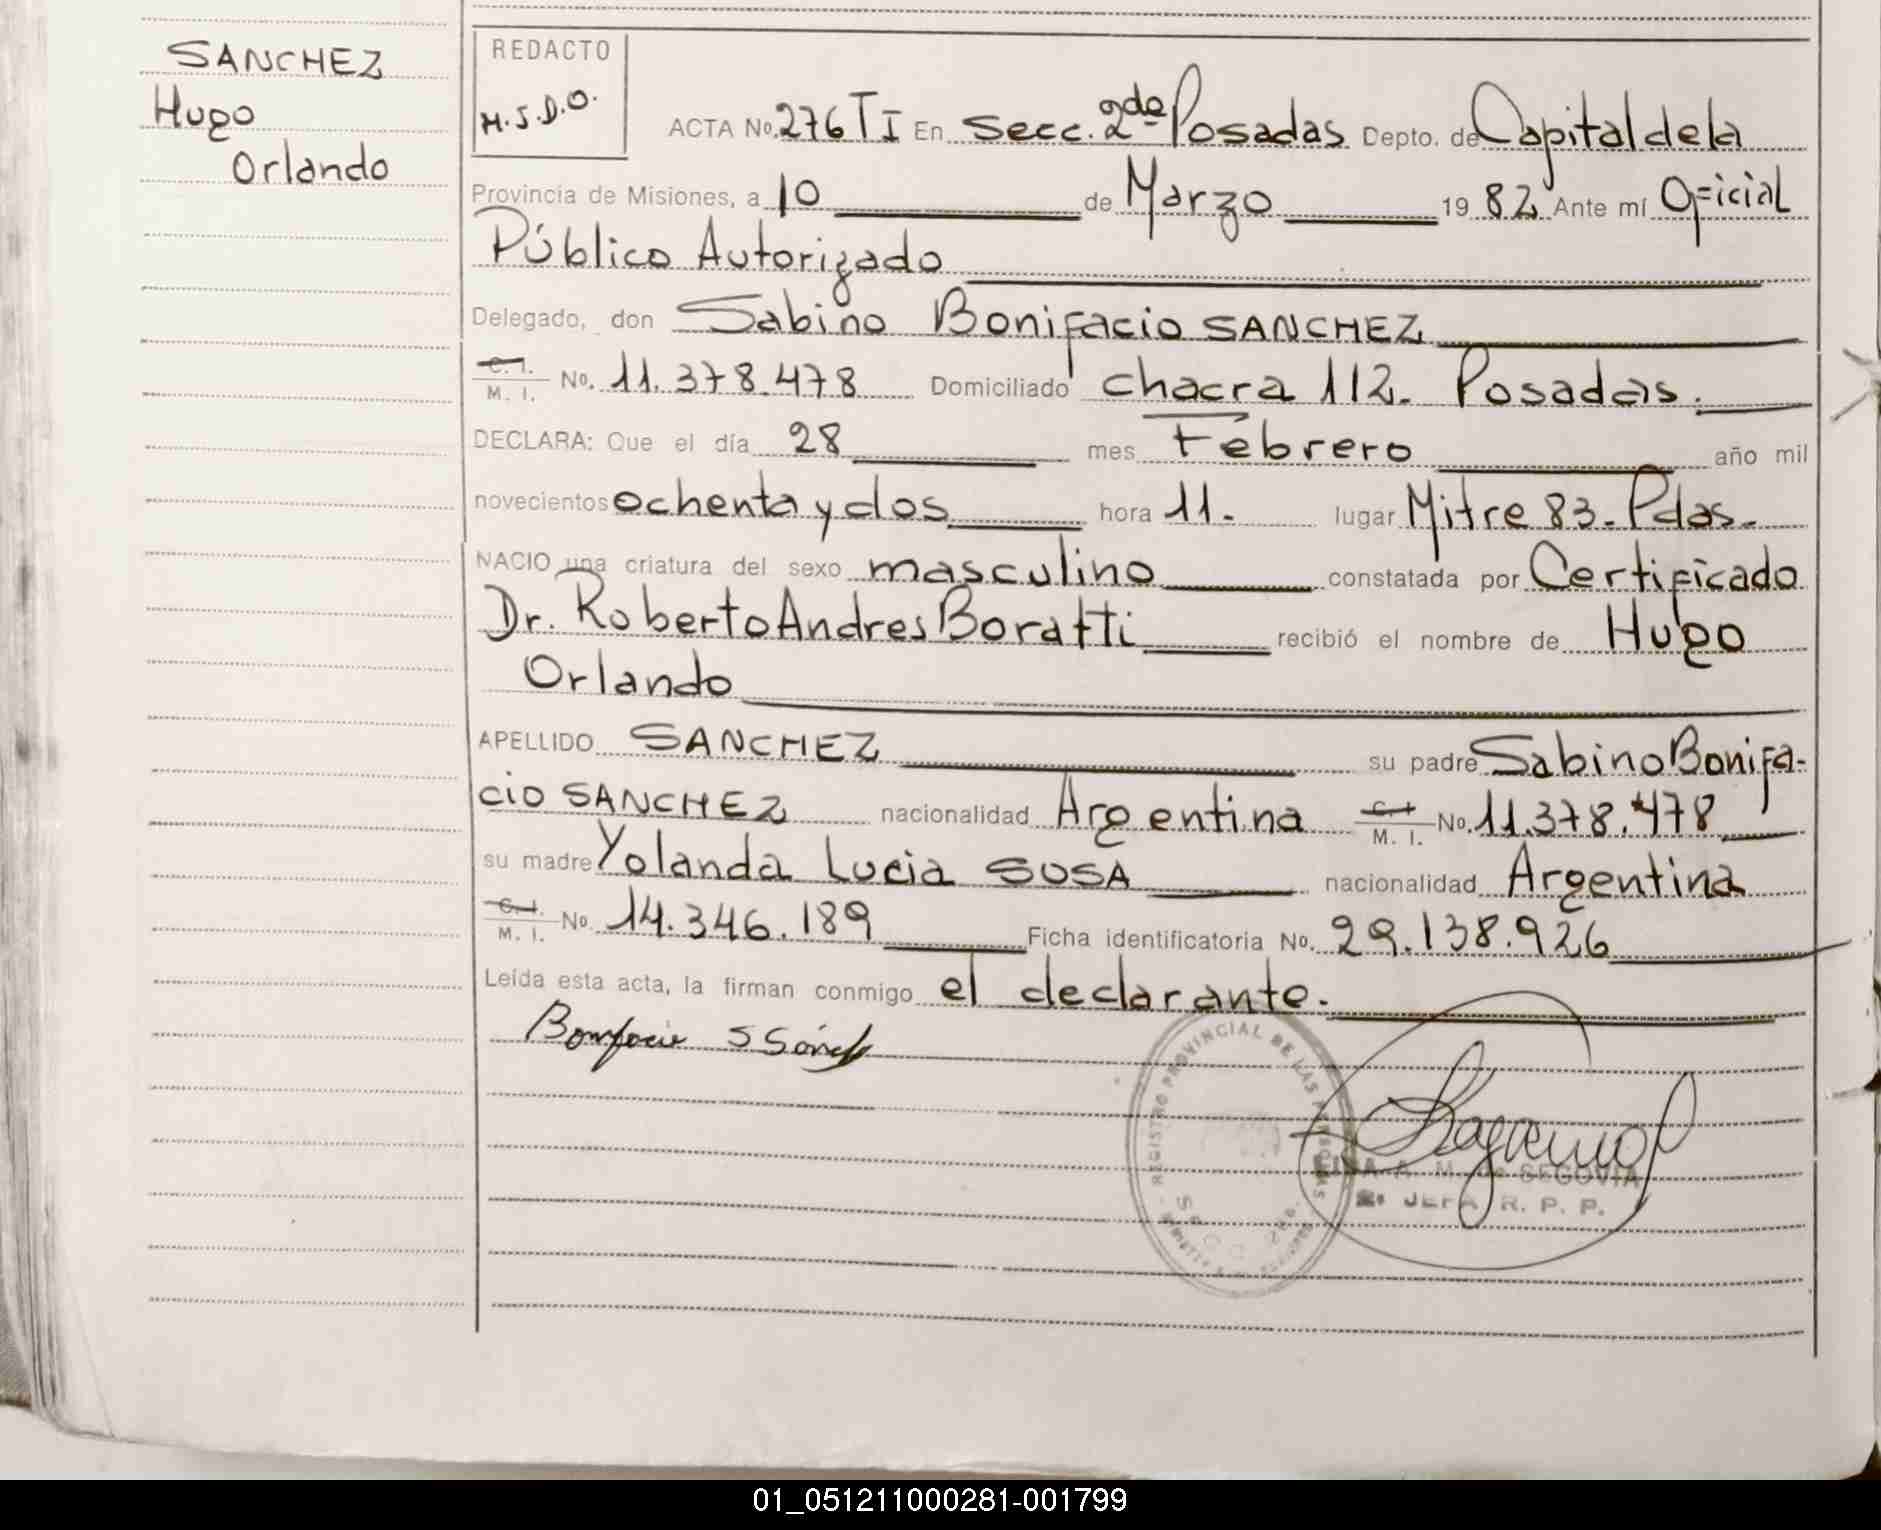 SANCHEZ
Hugo
Orlando
REDACTO
M.S.D.O.
ACTA No. 276 T I En Secc. 2da Posadas Depto. de Capital de la
Provincia de Misiones, a 10 de Marzo 19 82 Ante mí Oficial
Público Autorizado
Delegado, don Sabino Bonifacio SANCHEZ
C. I. M. I. No. 11.378.478 Domiciliado chacra 112. Posadas.
DECLARA: Que el día 28 mes Febrero año mil
novecientos ochenta y dos hora 11. lugar Mitre 83. Pdas.
NACIO una criatura del sexo masculino constatada por Certificado
Dr. Roberto Andres Boratti recibió el nombre de Hugo
Orlando
APELLIDO SANCHEZ su padre Sabino Bonifa-
cio SANCHEZ nacionalidad Argentina C. I. M. I. No. 11.378.478
su madre Yolanda Lucia SOSA nacionalidad Argentina
C. I. M. I. No. 14.346.189 Ficha identificatoria No. 29.138.926
Leída esta acta, la firman conmigo el declarante.
Bonifacio S Sánch
REGISTRO PROVINCIAL DE LAS PERSONAS
SECC. 2da.
M. de SEGOVIA
JEFA R. P. P.
01_051211000281-001799